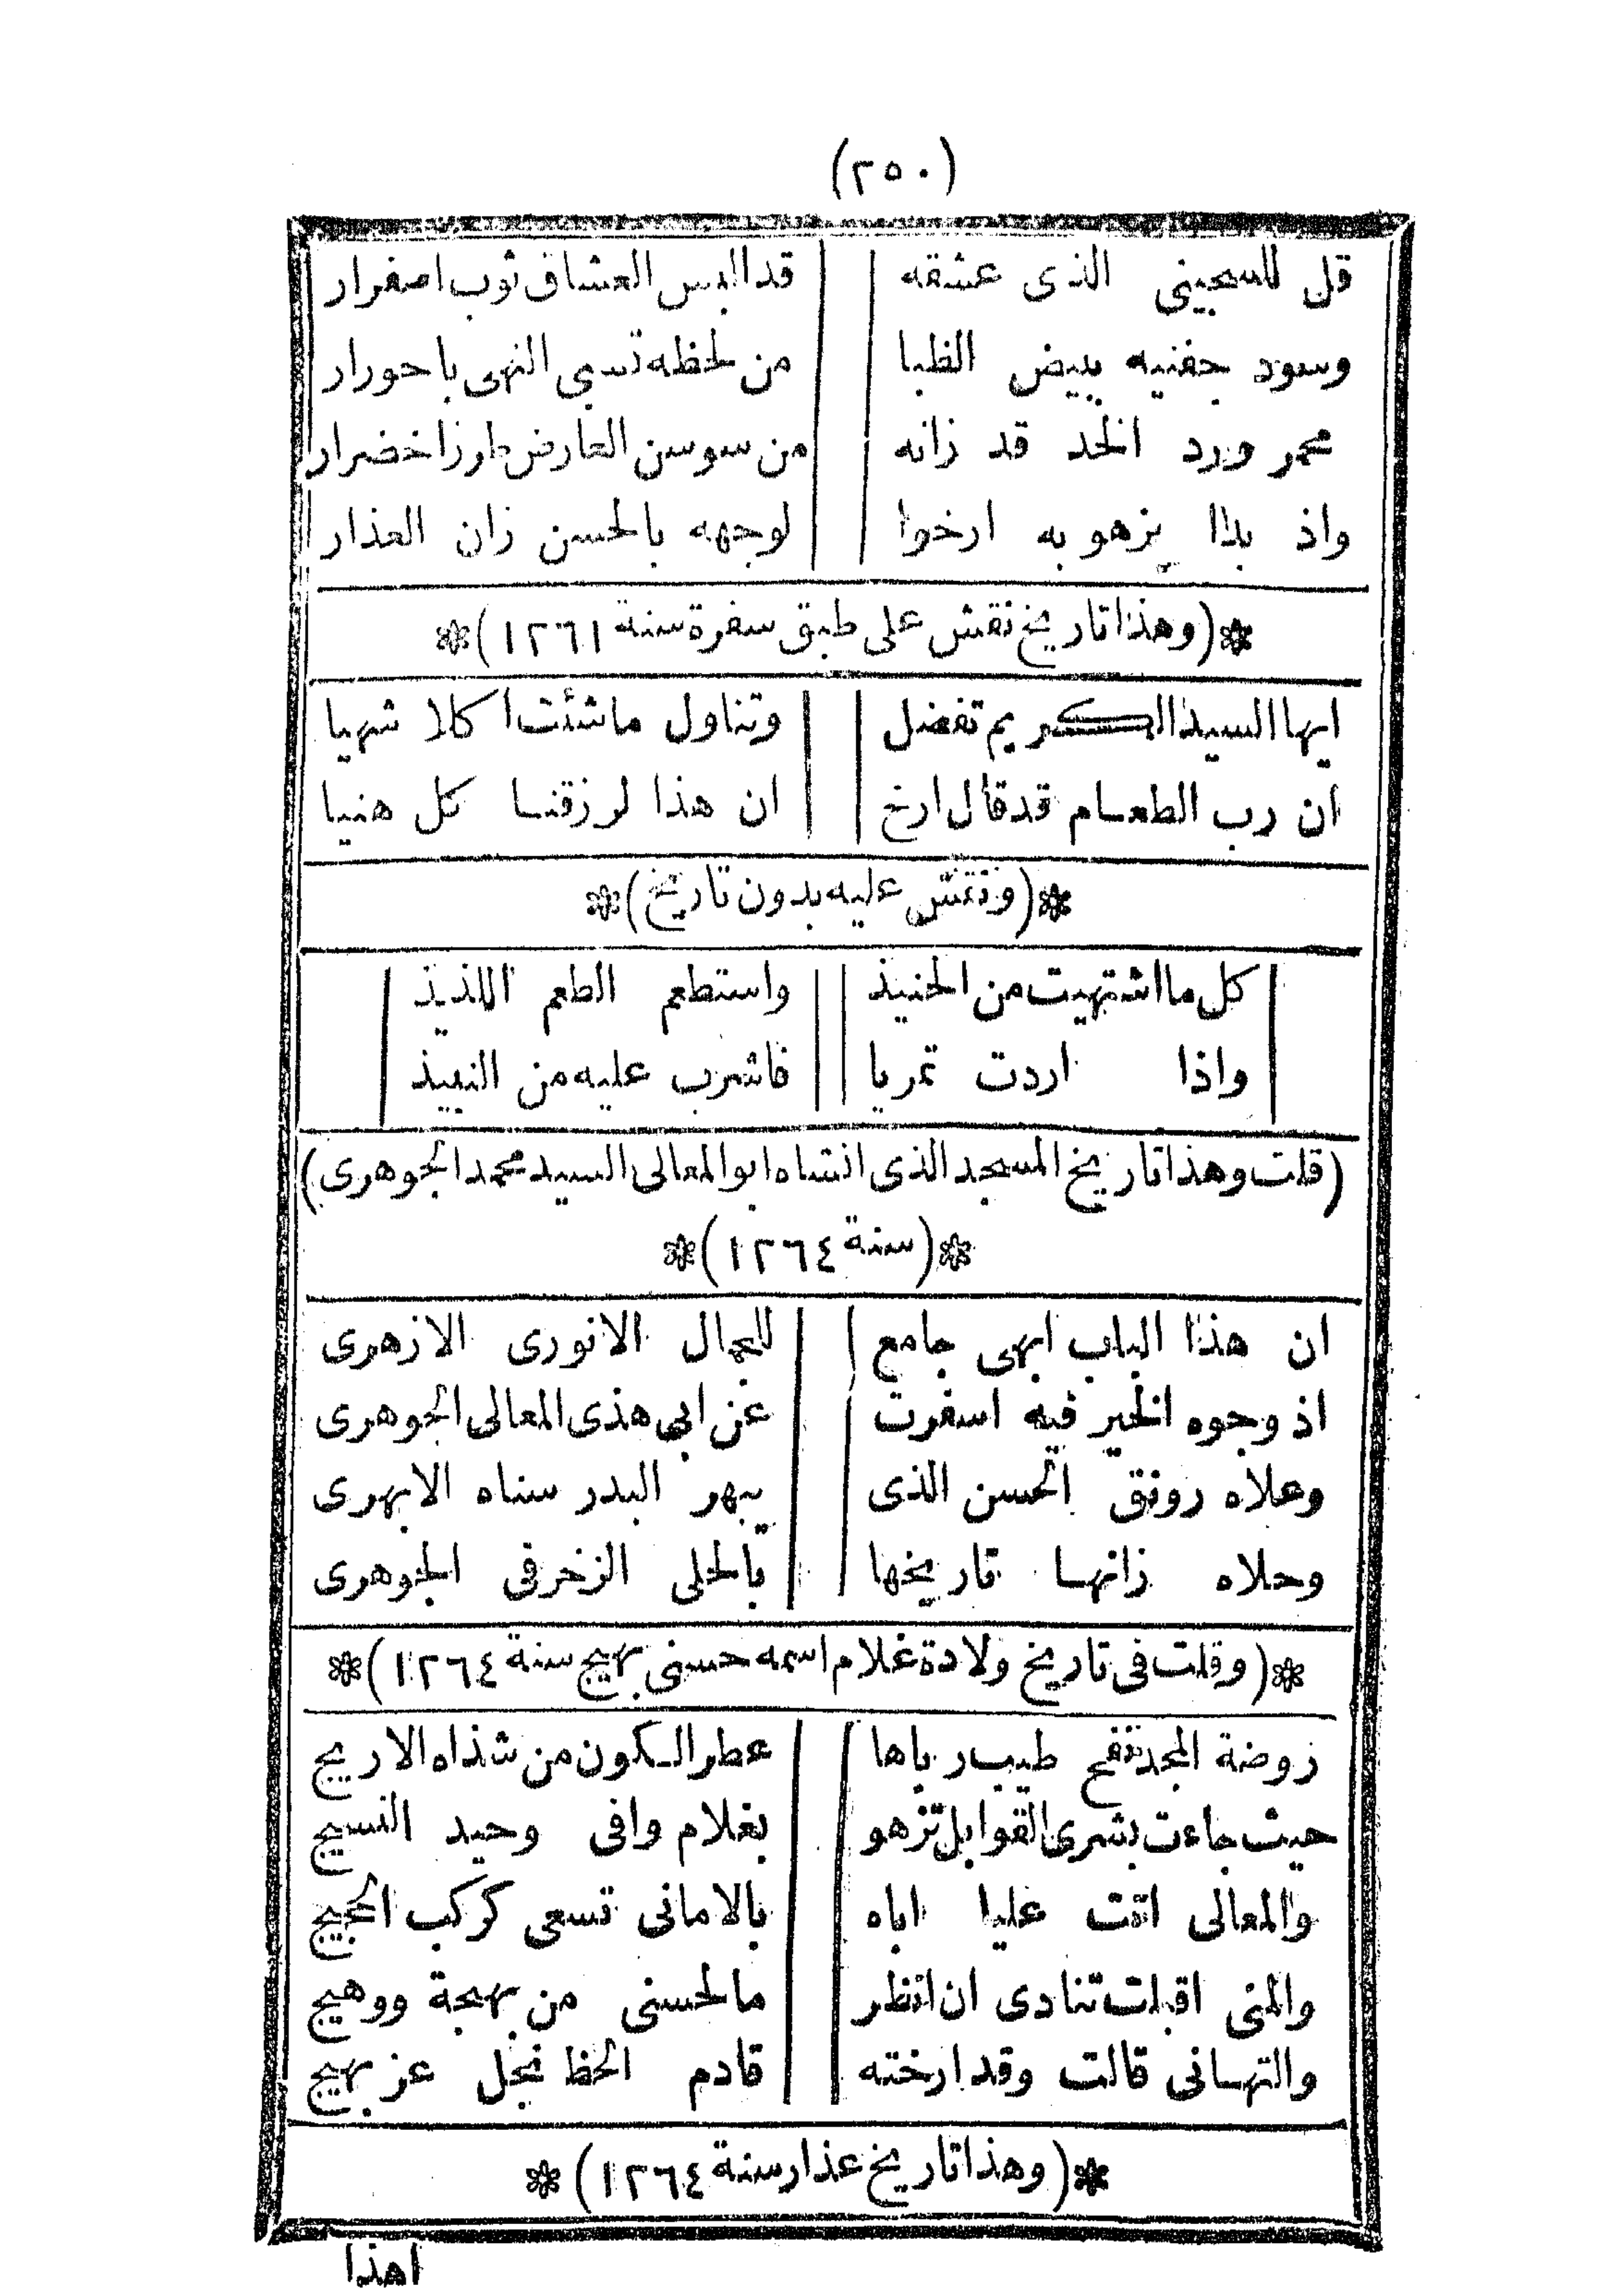 (٢٥٠)
قل للسجينى الذى عشقه قد البس العشاق ثوب اصفرار
وسود جفنيه ببيض الظبا من لحظه تسبى النهى باحورار
محمر ورد الخد قد زانه من سوسن العارض طرز اخضرار
واذ بدا يزهو به ارخوا لوجهه بالحسن زان العذار
*(وهذا تاريخ نقش على طبق سفرة سنة ١٢٦١)*
ايها السيد الكريم تفضل وتناول ما شئت اكلا شهيا
ان رب الطعام قد قال ارخ ان هذا لرزقنا كل هنيا
*(ونقش عليه بدون تاريخ)*
كل ما اشتهيت من الحنيذ واستطعم الطعم اللذيذ
واذا اردت تمريا فاشرب عليه من النبيذ
(قلت وهذا تاريخ المسجد الذى انشاه ابو المعالى السيد محمد الجوهرى)
*(سنة ١٢٦٤)*
ان هذا الباب ابهى جامع للجمال الانورى الازهرى
اذ وجوه الخير فيه اسفرت عن ابى هذى المعالى الجوهرى
وعلاه رونق الحسن الذى يبهر البدر سناه الابهرى
وحلاه زانها تاريخها بالحلى الزخرفى الجوهرى
*(وقلت فى تاريخ ولادة غلام اسمه حسنى بهيج سنة ١٢٦٤)*
روضة المجد نفح طيب رباها عطر الكون من شذاه الاريج
حيث جاءت بشرى القوابل تزهو بغلام وافى وحيد النسيج
والمعالى اتت عليا اباه بالامانى تسعى كركب الحجيج
والمنى اقبلت تنادى ان انظر ما لحسنى من بهجة ووهيج
والتهانى قالت وقد ارخته قادم الحظ نجل عز بهيج
*(وهذا تاريخ عذار سنة ١٢٦٤)*
اهذا